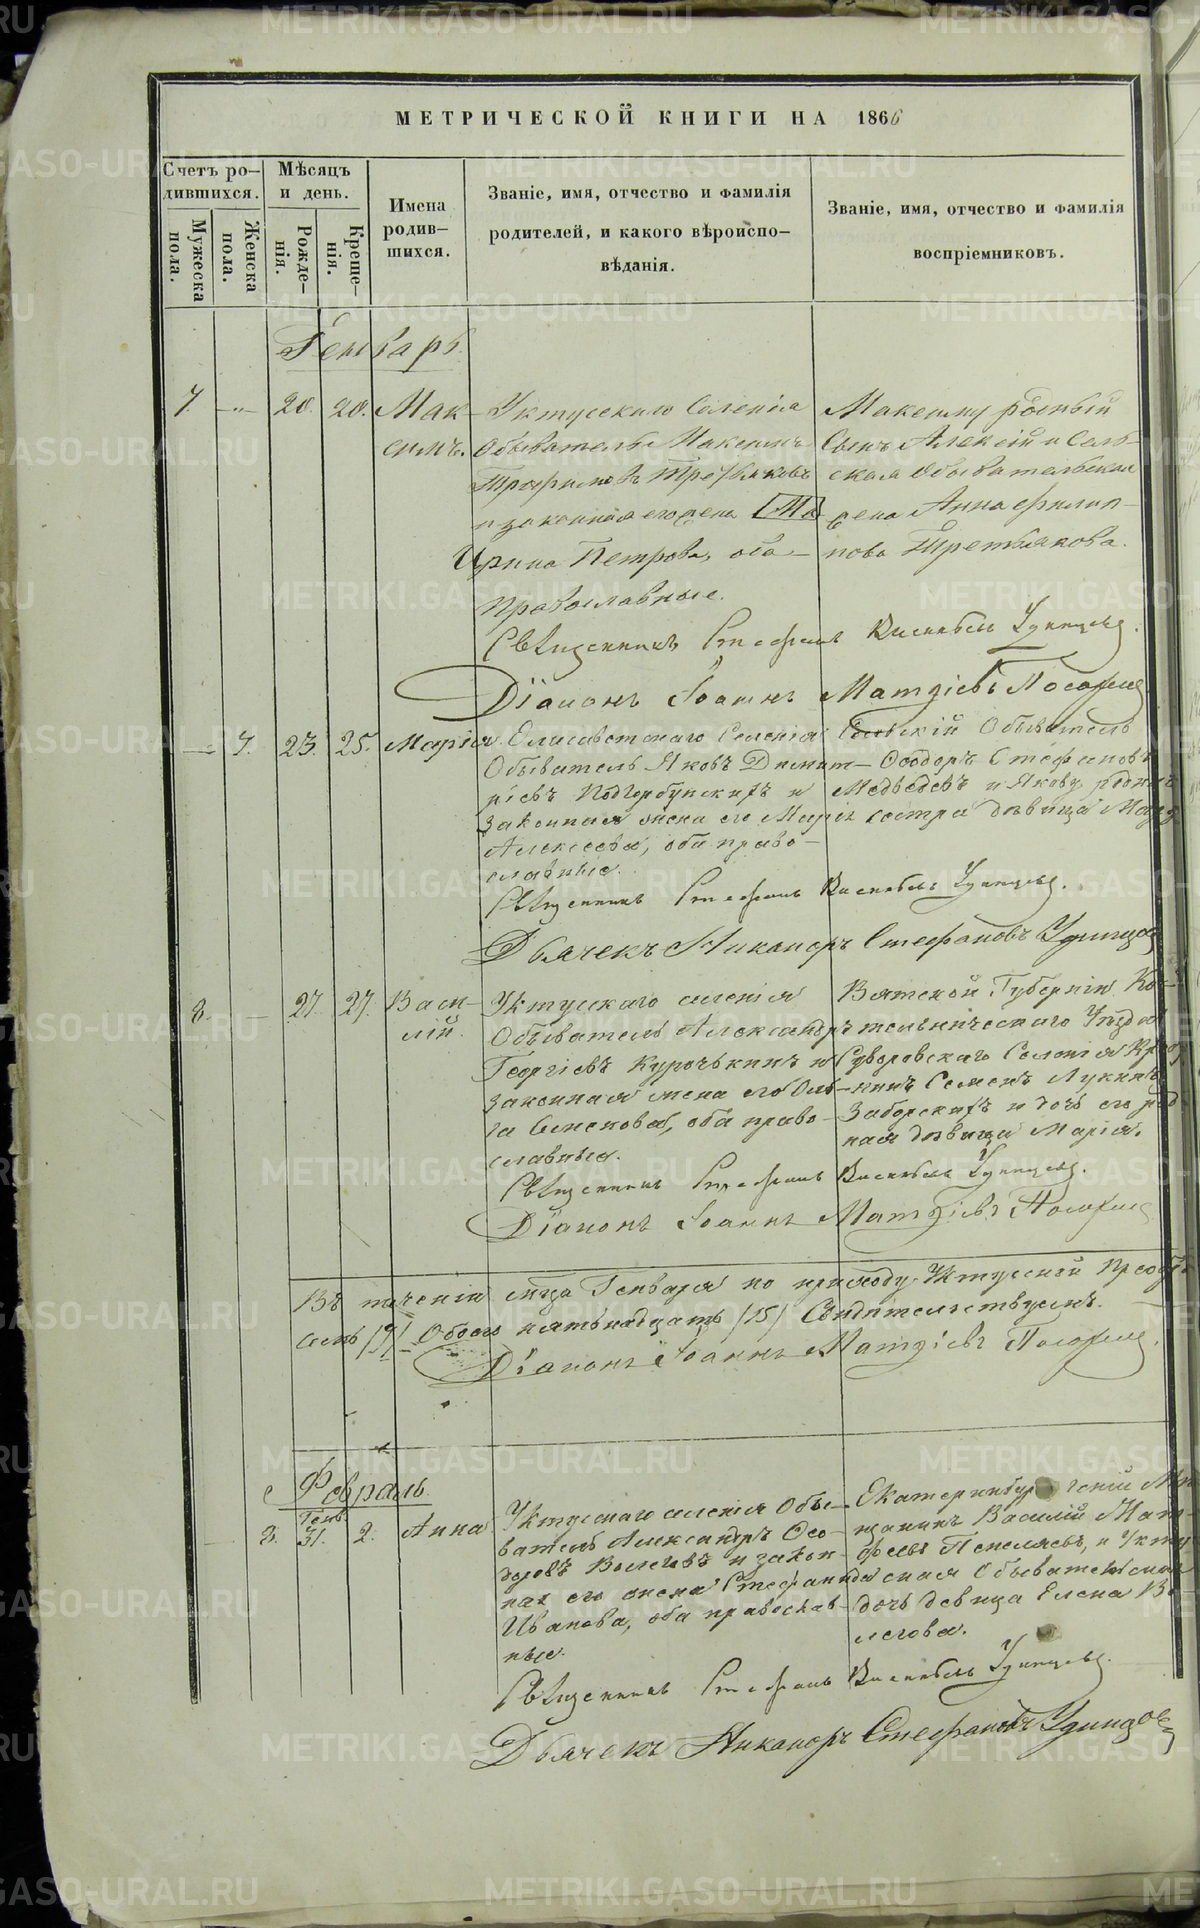 МЕТРИЧЕСКОЙ КНИГИ НА 1866
Счетъ ро-
дившихся.
Мужеска
пола.
Женска
пола.
Мѣсяцъ
и день.
Рожде-
нія.
Креще-
нія.
Имена
родив-
шихся.
Званіе, имя, отчество и фамилія
родителей, и какого вѣроиспо-
вѣданія.
Званіе, имя, отчество и фамилія
воспріемниковъ.
Генварь
7. — 20. 20. Мак-
симъ.
Уктусскаго Селенія
Обыватель Максимъ
Трофимовъ Третьяковъ
и законная его жена
Ирина Петрова, оба
православные.
Максиму родный
сынъ Алексій и Сель-
ская Обывательская
жена Анна Филип-
пова Третьякова.
Священникъ Стефанъ Васильевъ Удинцевъ.
Діаконъ Іоаннъ Матѳіевъ
— 7. 23. 25. Марія
Елисаветскаго Селенія
Обыватель Яковъ Димит-
ріевъ Подгорбунскихъ и
законная жена его Марія
Алексеева, оба право-
славные.
Сельскій Обыватель
Ѳеодоръ Стефановъ
Медведевъ и Якову родная
сестра дѣвица
Священникъ Стефанъ Васильевъ Удинцевъ.
Дьячекъ Никаноръ Стефановъ Удинцовъ
8. — 27. 27. Васи-
лій.
Уктусскаго селенія
Обыватель Александръ
Георгіевъ Курочькинъ и
законная жена его Оль-
га Семенова, оба право-
славные.
Вятской Губерніи Ко-
тельническаго Уѣзда
Суворовскаго Селенія
Семенъ Лукинъ
Заборскихъ и дочь его род-
ная дѣвица Марія.
Священникъ Стефанъ Васильевъ Удинцевъ.
Діаконъ Іоаннъ Матѳіевъ
Въ теченіи мѣсяца Генваря по приходу Уктусской
семь /7/ Обоего пятьнадцать /15/ Свидѣтельствуемъ.
Діаконъ Іоаннъ Матѳіевъ
Февраль.
Генв.
— 8. 31. 2. Анна
Уктусскаго селенія Обы-
ватель Александръ Ѳео-
доровъ Волеговъ и закон-
ная его жена Стефанида
Иванова, оба православ-
ные.
Екатеринбургскій Мѣ-
щанинъ Василій Мат-
фѣевъ Пепеляевъ, и Укту
ская Обывательская
дочь девица Елена Во
легова.
Священникъ Стефанъ Васильевъ Удинцевъ.
Дьячекъ Никаноръ Стефановъ Удинцовъ
METRIKI.GASO-URAL.RU